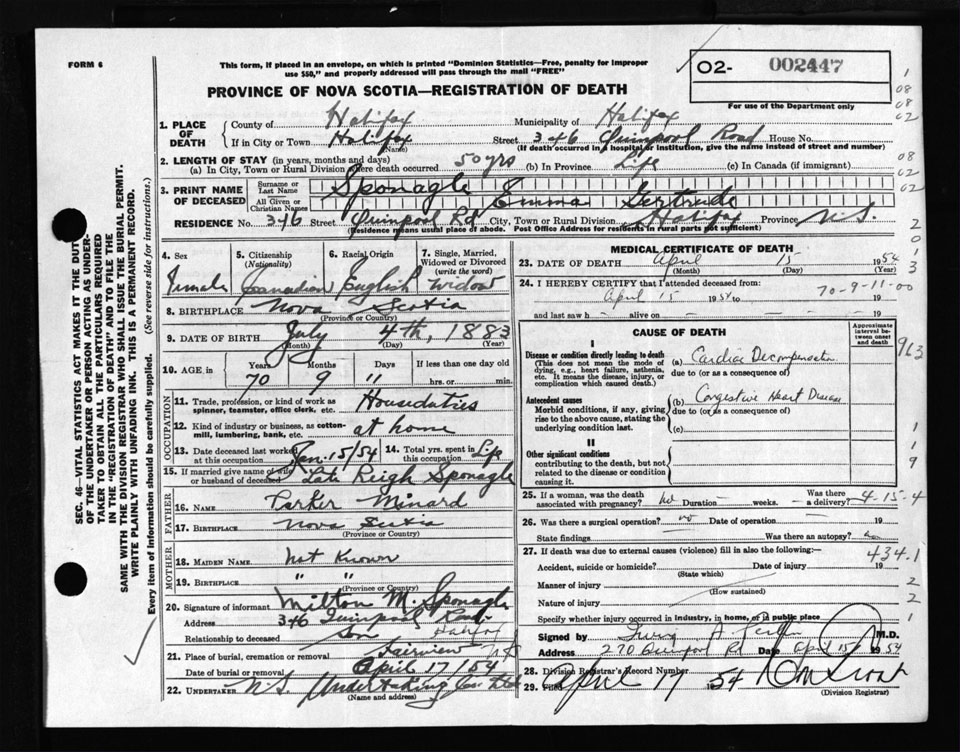 FORM 6
This form, if placed in an envelope, on which is printed "Dominion Statistics—Free, penalty for improper
use $50," and properly addressed will pass through the mail "FREE"
02- 002447
For use of the Department only
PROVINCE OF NOVA SCOTIA—REGISTRATION OF DEATH
1
08
08
02
08
02
02
2
0
1
3
1. PLACE OF DEATH
County of Halifax Municipality of Halifax
If in City or Town Halifax (Name) Street 346 Quinpool Road House No.
(If death occurred in a hospital or institution, give the name instead of street and number)
2. LENGTH OF STAY (in years, months and days)
(a) In City, Town or Rural Division where death occurred 50 yrs (b) In Province Life (c) In Canada (if immigrant)
3. PRINT NAME OF DECEASED
Surname or Last Name Sponagle
All Given or Christian Names Emma Gertrude
RESIDENCE No. 346 Street Quinpool Rd City, Town or Rural Division Halifax Province N.S.
(Residence means usual place of abode. Post Office Address for residents in rural parts not sufficient)
4. Sex Female
5. Citizenship (Nationality) Canadian
6. Racial Origin English
7. Single, Married, Widowed or Divorced (write the word) widow
8. BIRTHPLACE Nova Scotia
(Province or Country)
9. DATE OF BIRTH July 4th, 1883
(Month) (Day) (Year)
10. AGE in Years 70 Months 9 Days 11 If less than one day old hrs. or min.
OCCUPATION
11. Trade, profession, or kind of work as spinner, teamster, office clerk, etc. Houseduties
12. Kind of industry or business, as cotton-mill, lumbering, bank, etc. at home
13. Date deceased last worked at this occupation Jan. 15/54
14. Total yrs. spent in this occupation Life
15. If married give name of wife or husband of deceased Late Reigh Sponagle
FATHER
16. Name Parker Minard
17. Birthplace Nova Scotia
(Province or Country)
MOTHER
18. MAIDEN NAME Not Known
19. BIRTHPLACE " "
(Province or Country)
20. Signature of informant Milton M. Sponagle
Address 346 Quinpool Road Halifax
Relationship to deceased Son
21. Place of burial, cremation or removal Fairview NS
Date of burial or removal April 17/54
22. UNDERTAKER N.S. Undertaking Co. Ltd
(Name and address)
MEDICAL CERTIFICATE OF DEATH
23. DATE OF DEATH April 15 1954
(Month) (Day) (Year)
24. I HEREBY CERTIFY that I attended deceased from
April 15 1954 to 19
70-9-11-00
and last saw h - alive on - 19
CAUSE OF DEATH
Approximate interval between onset and death
963
I
Disease or condition directly leading to death
(This does not mean the mode of dying, e.g., heart failure, asthenia, etc. It means the disease, injury, or complication which caused death.)
(a) Cardiac Decompensation
due to (or as a consequence of)
Antecedent causes
Morbid conditions, if any, giving rise to the above cause, stating the underlying condition last.
(b) Congestive Heart Disease
due to (or as a consequence of)
(c)
1
1
9
II
Other significant conditions
contributing to the death, but not related to the disease or condition causing it.
25. If a woman, was the death associated with pregnancy? no Duration - weeks. Was there a delivery? -
4-15-4
26. Was there a surgical operation? no Date of operation - 19
State findings Was there an autopsy? no
27. If death was due to external causes (violence) fill in also the following:—
434.1
Accident, suicide or homicide? Date of injury 19
(State which)
Manner of injury
(How sustained)
2
Nature of injury
2
Specify whether injury occurred in industry, in home, or in public place
1
Signed by M.D.
Address 270 Quinpool Rd Date April 15 1954
28. Division Registrar's Record Number
29. Filed April 17 1954
(Division Registrar)
SEC. 46—VITAL STATISTICS ACT MAKES IT THE DUTY
OF THE UNDERTAKER OR PERSON ACTING AS UNDER-
TAKER TO OBTAIN ALL THE PARTICULARS REQUIRED
IN THE "REGISTRATION OF DEATH" AND TO FILE THE
SAME WITH THE DIVISION REGISTRAR WHO SHALL ISSUE THE BURIAL PERMIT.
WRITE PLAINLY WITH UNFADING INK. THIS IS A PERMANENT RECORD.
Every item of Information should be carefully supplied. (See reverse side for instructions.)